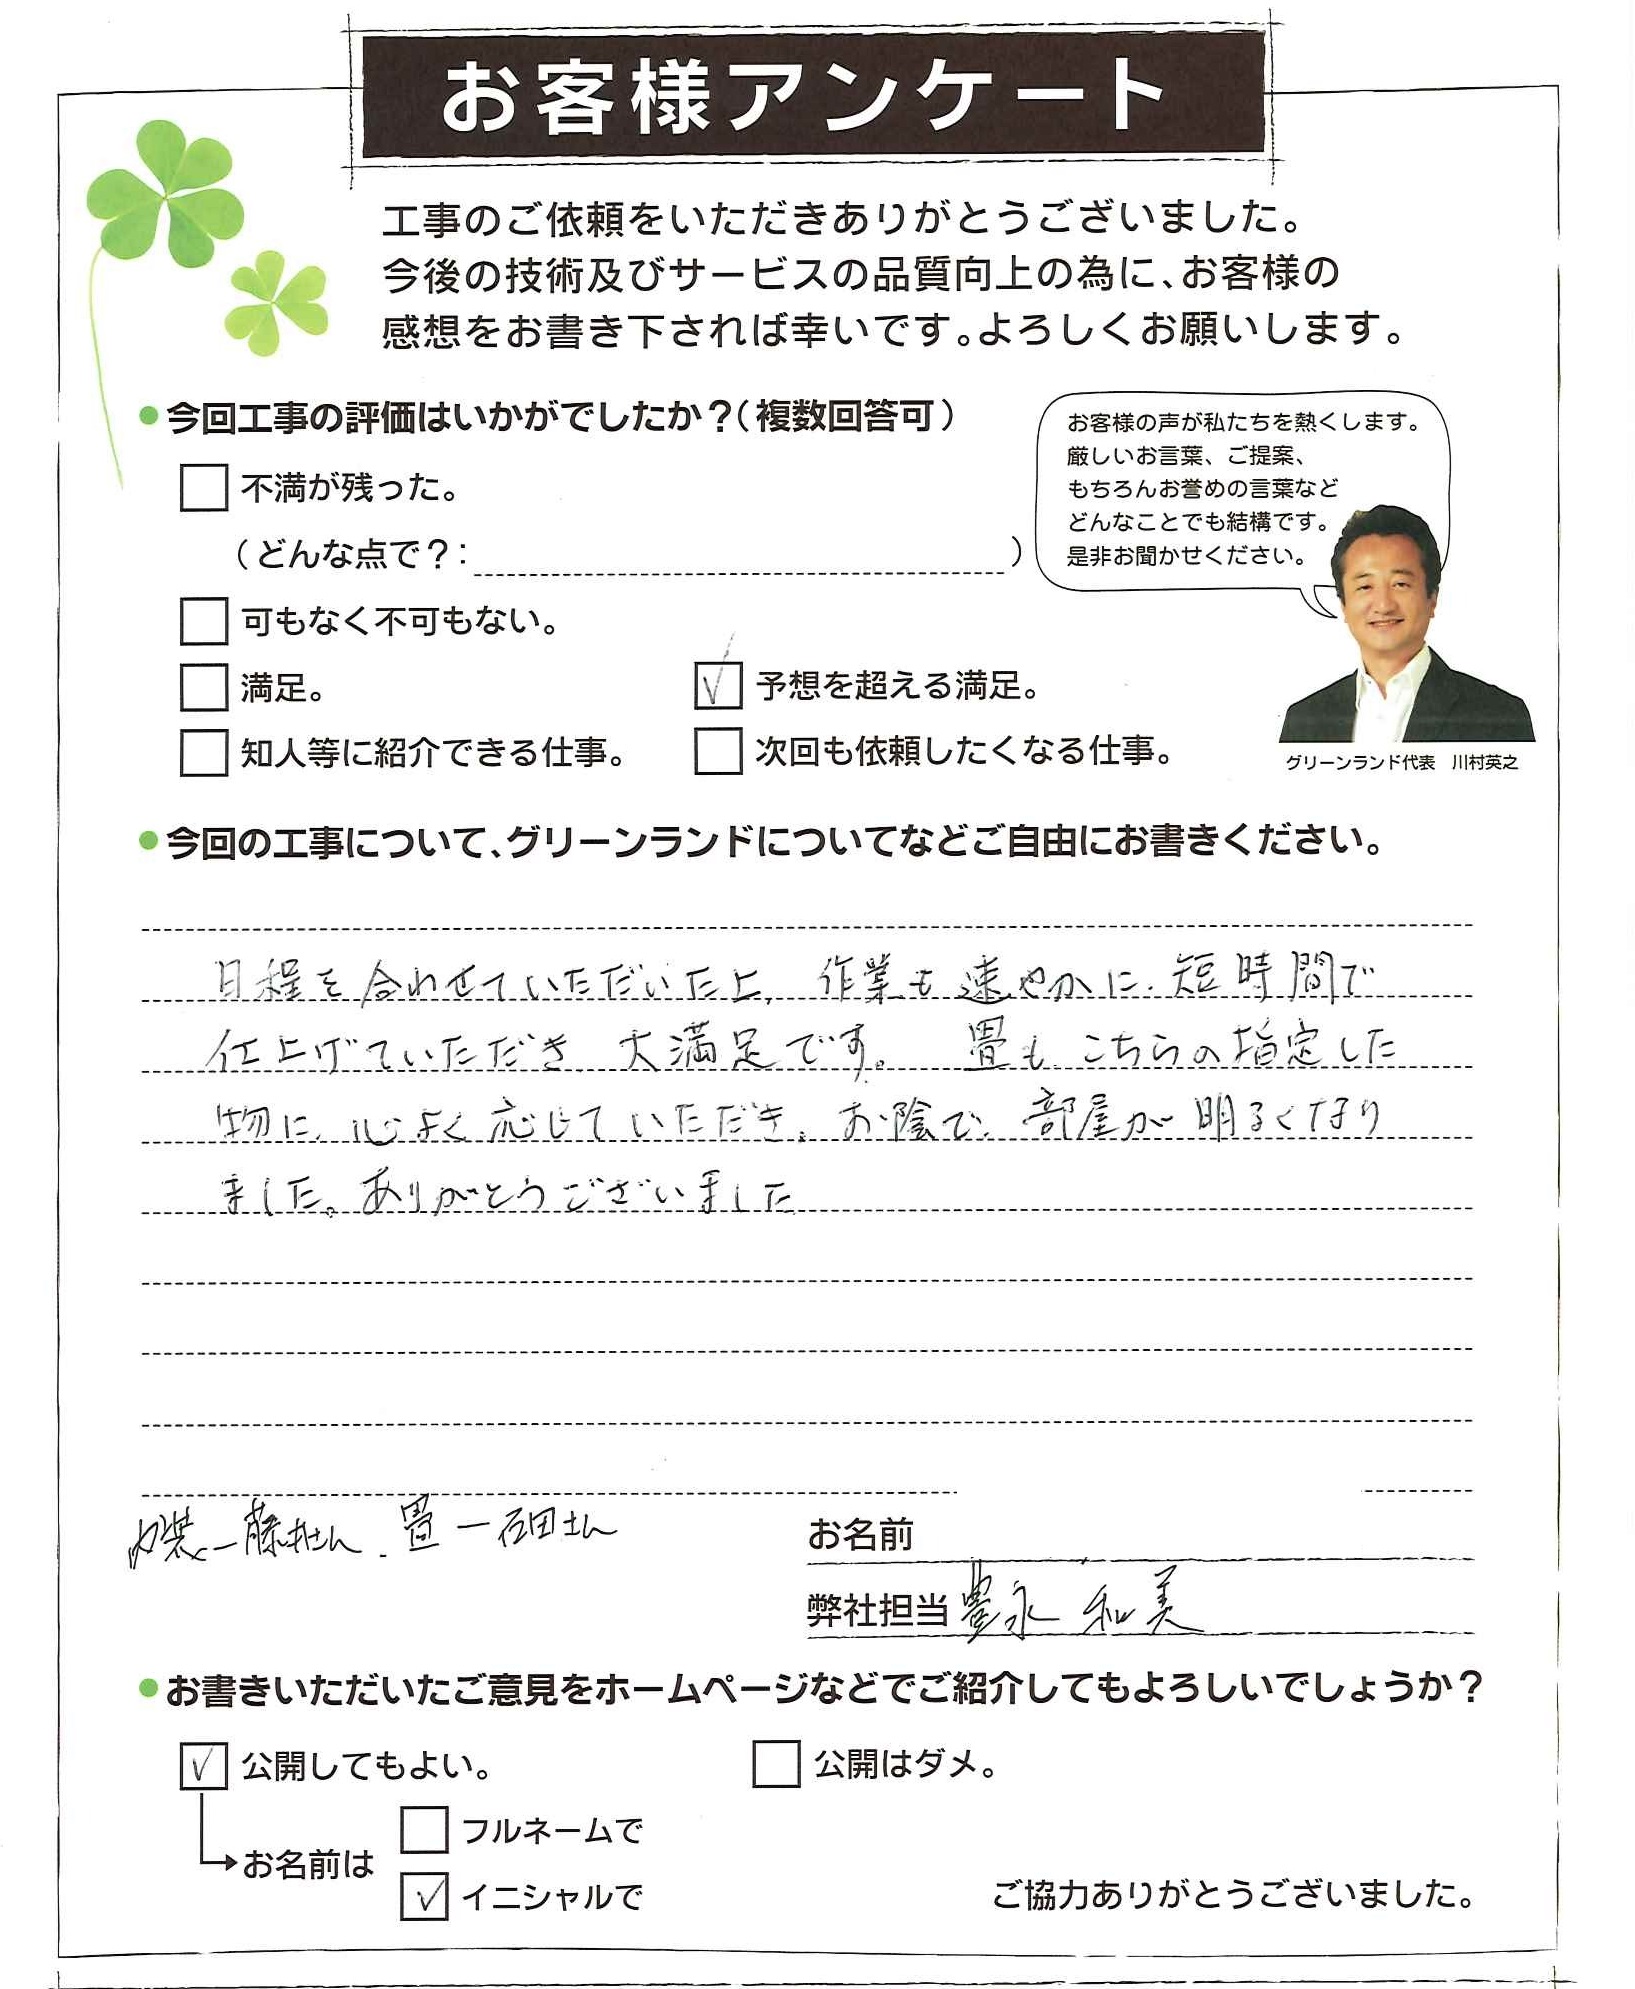 お客様アンケート
工事のご依頼をいただきありがとうございました。
今後の技術及びサービスの品質向上の為に、お客様の
感想をお書き下されば幸いです。よろしくお願いします。
●今回工事の評価はいかがでしたか?(複数回答可)
お客様の声が私たちを熱くします。
厳しいお言葉、ご提案、
もちろんお誉めの言葉など
どんなことでも結構です。
是非お聞かせください。
不満が残った。
(どんな点で?: )
可もなく不可もない。
満足。
✓ 予想を超える満足。
知人等に紹介できる仕事。
次回も依頼したくなる仕事。
グリーンランド代表 川村英之
●今回の工事について、グリーンランドについてなどご自由にお書きください。
日程を合わせていただいた上、作業も速やかに、短時間で
仕上げていただき、大満足です。 畳も、こちらの指定した
物に、心よく応じていただき、お陰で、部屋が明るくなり
ました。ありがとうございました
内装ー藤村さん、畳ー石田さん
お名前
弊社担当 豊永 和美
●お書きいただいたご意見をホームページなどでご紹介してもよろしいでしょうか?
✓ 公開してもよい。
公開はダメ。
お名前は
フルネームで
✓ イニシャルで
ご協力ありがとうございました。